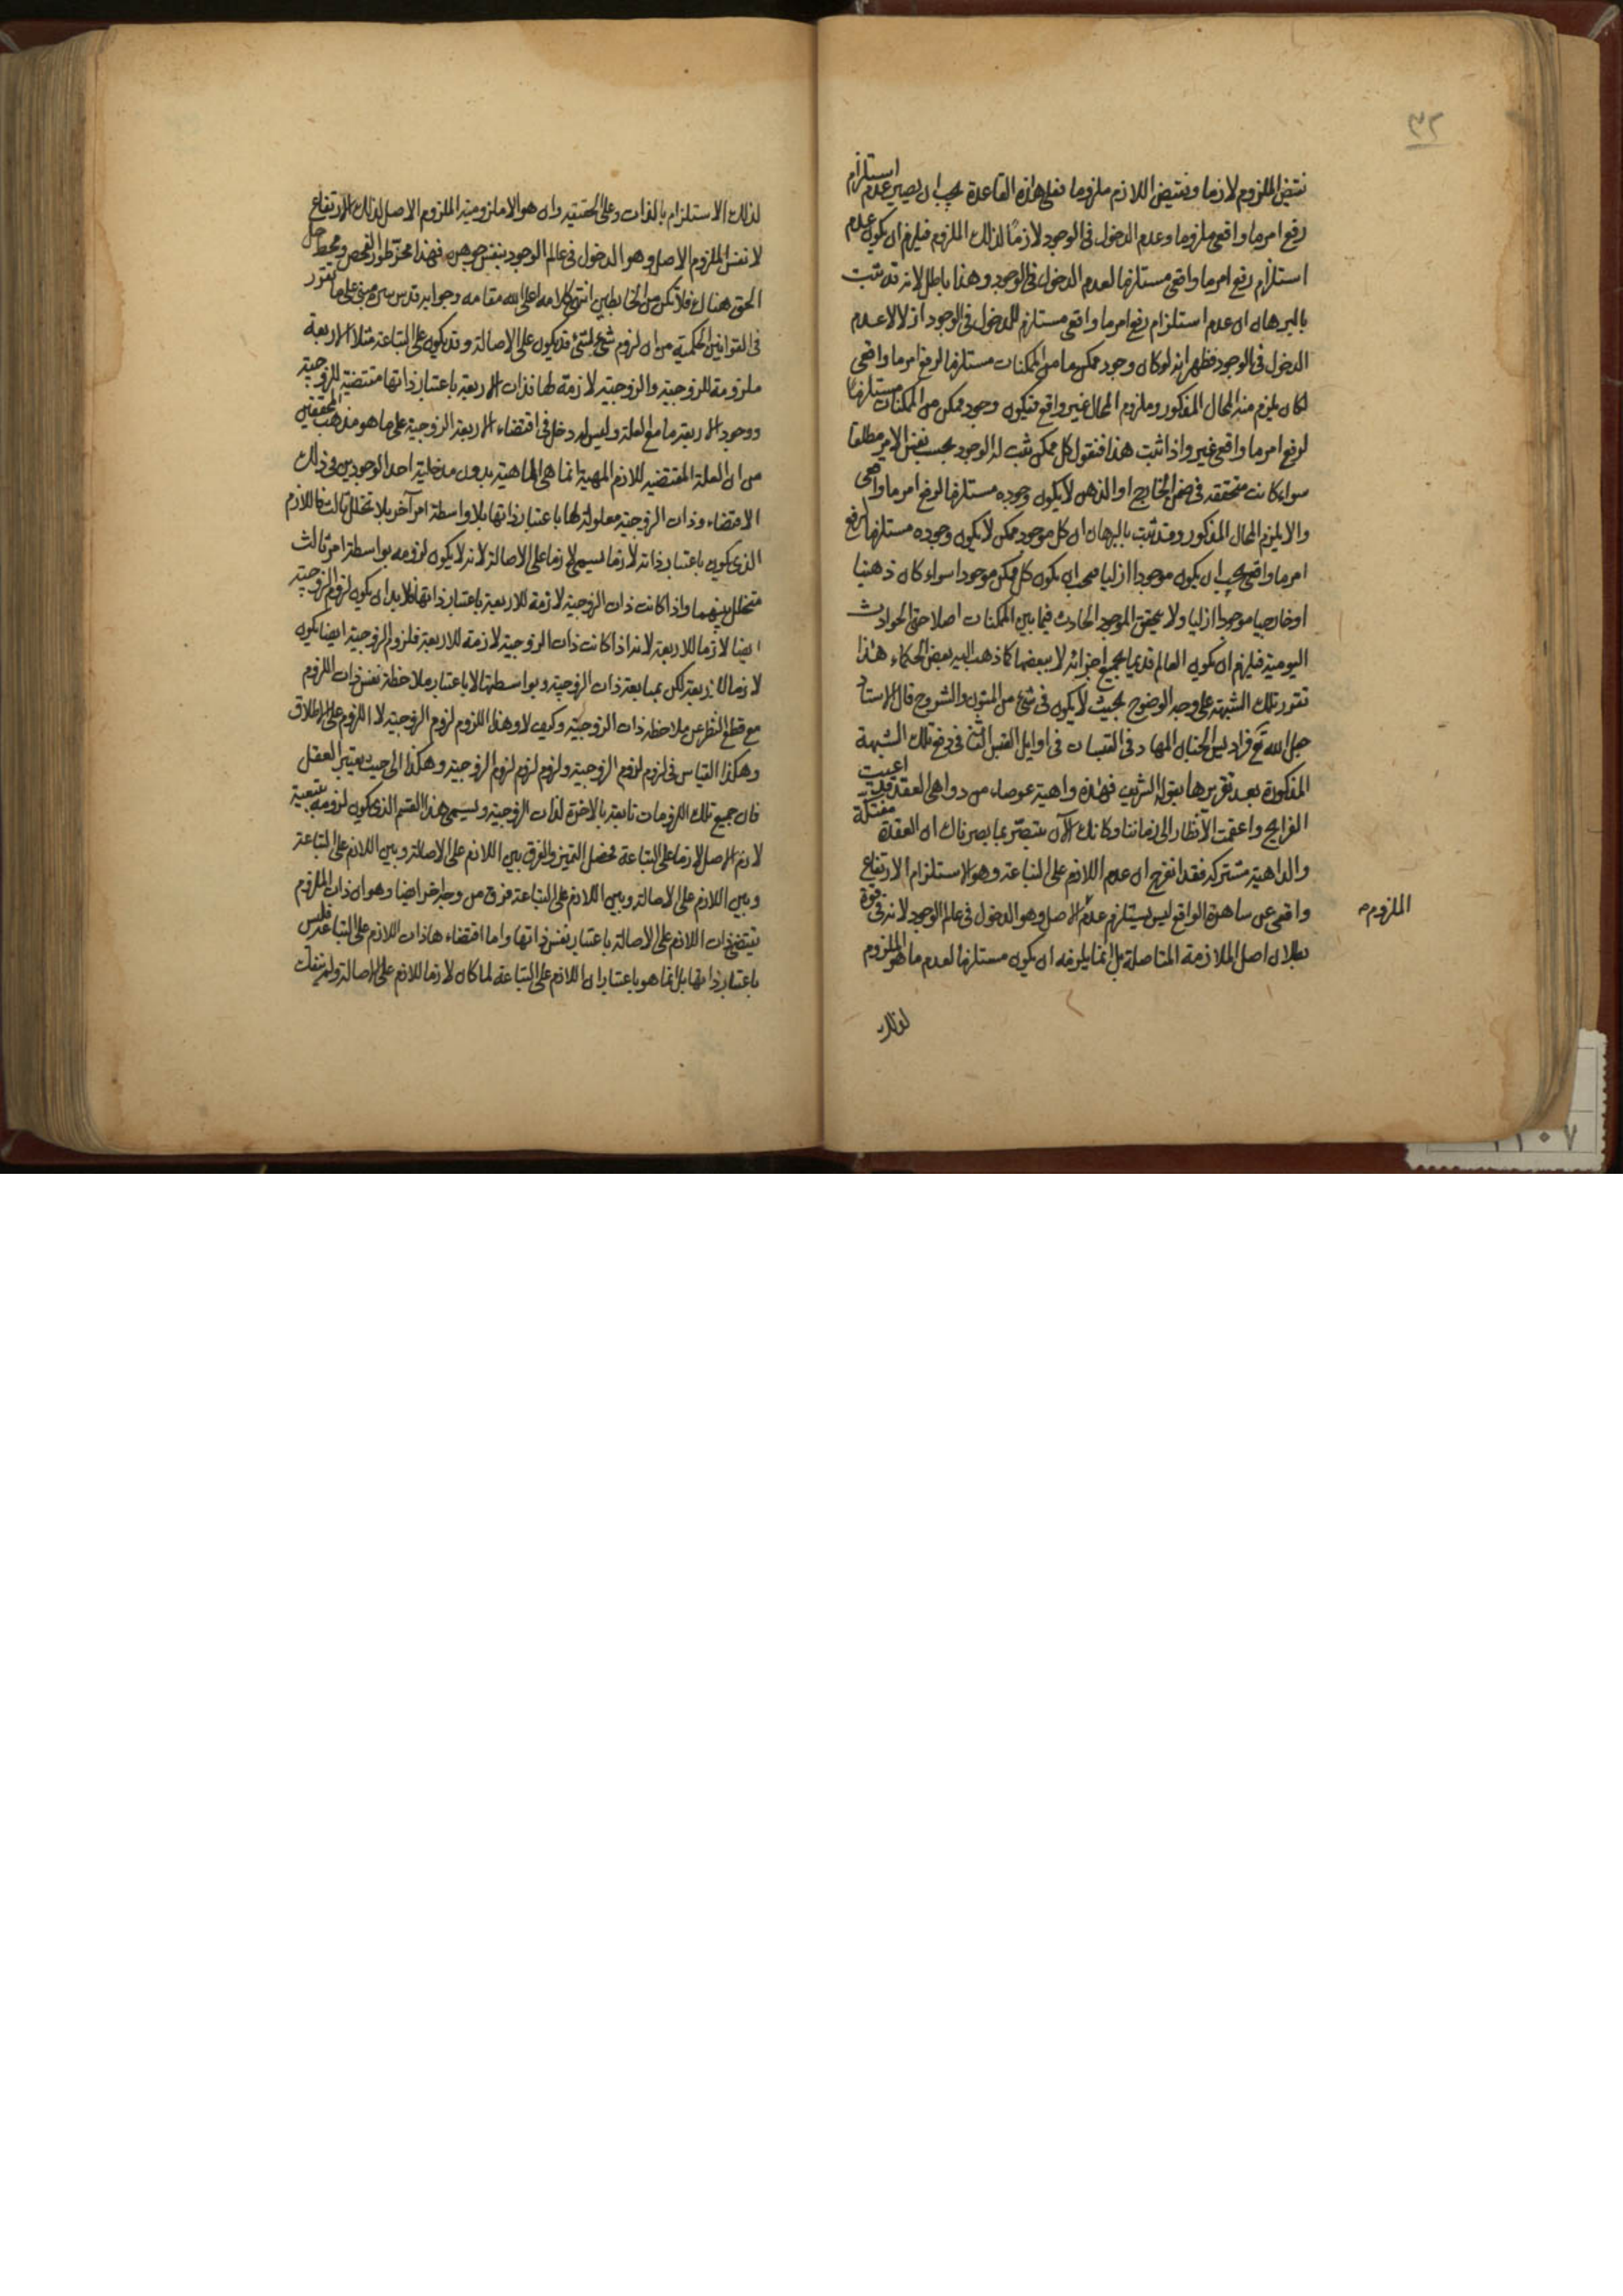 ٣٢
نقيض الملزوم لازما ونقيض اللازم ملزوما فعلى هذه القاعدة يجب ان يصير عدم استلزام
رفع امر ما واقعى ملزوما وعدم الدخول فى الوجود لازمًا لذلك الملزوم فيلزم ان يكون عدم
استلزام رفع امر ما واقعى مستلزما لعدم الدخول فى الوجود وهذا باطل لانه قد ثبت
بالبرهان ان عدم استلزام رفع امر ما واقعى مستلزم للدخول فى الوجود ازلا لا عدم
الدخول فى الوجود فظهر انه لو كان وجود ممكن ما من الممكنات مستلزما لرفع امر ما واقعى
لكان يلزم منه المحال المذكور وملزوم المحال غير واقع فيكون وجود ممكن من الممكنات مستلزما
لرفع امر ما واقعى غير واذا ثبت هذا فنقول كل ممكن ثبت له الوجود بحسب نفس الامر مطلقا
سواء كانت متحققه فى ضمن الخارج او الذهن لا يكون وجوده مستلزما لرفع امر ما واقعى
والا يلزم المحال المذكور وقد ثبت بالبرهان ان كل موجود ممكن لا يكون وجوده مستلزما لرفع
امر ما واقعى يجب ان يكون موجودا ازليا فيجب ان يكون كل ممكن موجودا سواء كان ذهنيا
او خارجيا موجودا ازليا ولا يتحقق الموجود الحادث فيما بين الممكنات اصلا حتى الحوادث
اليومية فيلزم ان يكون العالم قديما بجميع اجزائه لا ببعضها كما ذهب اليه بعض الحكماء هذا
تقرر تلك الشبهة على وجه الوضوح بحيث لا يكون فى شئ من المتون والشروح قال الاستاد
جعل الله تع فراديس الجنان المهاد فى القبسات فى اوايل القبس فى دفع تلك الشبهة
المذكورة بعد تقريرها بقوله الشريف فهذه داهية عوصاء من دواهى العقد قد اعيت
القرايح واعقمت الانظار الى زماننا وكانك الآن متبصّر بما بصرناك ان العقدة مفتكّة
والداهية مشتركه فقد انفرج ان عدم اللازم على التباعة وهو الاستلزام الارتفاع
واقعى عن ساهرة الواقع ليس يستلزم عدم الاصل وهو الدخول فى عالم الوجود لانه فى قوة
بطلان اصل الملازمة المتاصلة بل انما يلزمه ان يكون مستلزما لعدم ما هو الملزوم
الملزوم
لذلك
لذلك الاستلزام بالذات وعلى الحقيقه وان هو الا ملزومية الملزوم الاصل لذلك الارتفاع
لا نفس الملزوم الاصل وهو الدخول فى عالم الوجود بنفس جوهره فهذا محزّ طور الفحص ومحط رحل
الحق هنالك فلا تكن من الخابطين انتهى كلامه اعلى الله مقامه وجوابه قدس سره مبنى على ما تقرر
فى القوانين الحكمية من ان لزوم شئ لشئ قد يكون على الاصالة وقد يكون على التباعة مثلا الاربعة
ملزومة للزوجية والزوجية لازمة لها فذات الاربعة باعتبار ذاتها مقتضية للزوجية
ووجود الاربعة ما مع العلة وليس له دخل فى اقتضاء الاربعة الزوجية على ما هو مذهب المحققين
من ان العلة المقتضيه للازم المهية انما هى الماهية بدون مدخلية احد الوجودين فى ذلك
الاقتضاء وذات الزوجية معلولة لها باعتبار ذاتها بلا واسطة امر آخر بلا تخلل ثالث فاللازم
الذى يكون باعتبار ذاته لازما يسمى لازما على الاصالة لانه لا يكون لزومه بواسطة امر ثالث
متخلل بينهما واذا كانت ذات الزوجية لازمة للاربعة باعتبار ذاتها فلا بد ان يكون لزوم الزوجية
ايضا لازما للاربعة لانه اذا كانت ذات الزوجية لازمة للاربعة فلزوم الزوجية ايضا يكون
لازما للاربعة لكن بمتابعة ذات الزوجية وبواسطتها لا باعتبار ملاحظة نفس ذات اللزوم
مع قطع النظر عن ملاحظه ذات الزوجية وكيف لا وهذا اللزوم لزوم الزوجية لا اللزوم على الاطلاق
وهكذا القياس فى لزوم لزوم الزوجية ولزوم لزوم لزوم الزوجية وهكذا الى حيث يعتبر العقل
فان جميع تلك اللزومات تابعة بالاخرة لذات الزوجية ويسمى هذا القسم الذى يكون لزومه بتبعية
لازم الاصل لازما على التباعة فحصل التميز والفرق بين اللازم على الاصالة وبين اللازم على التباعة
وبين اللازم على الاصالة وبين اللازم على التباعة فرق من وجه اخر ايضا وهو ان ذات الملزوم
يقتضى ذات اللازم على الاصالة باعتبار نفس ذاتها واما اقتضاء هاذات اللازم على التباعة فليس
باعتبار ذاتها بل انما هو باعتبار ان اللازم على التباعة لما كان لازما للازم على الاصالة ولم ينفك